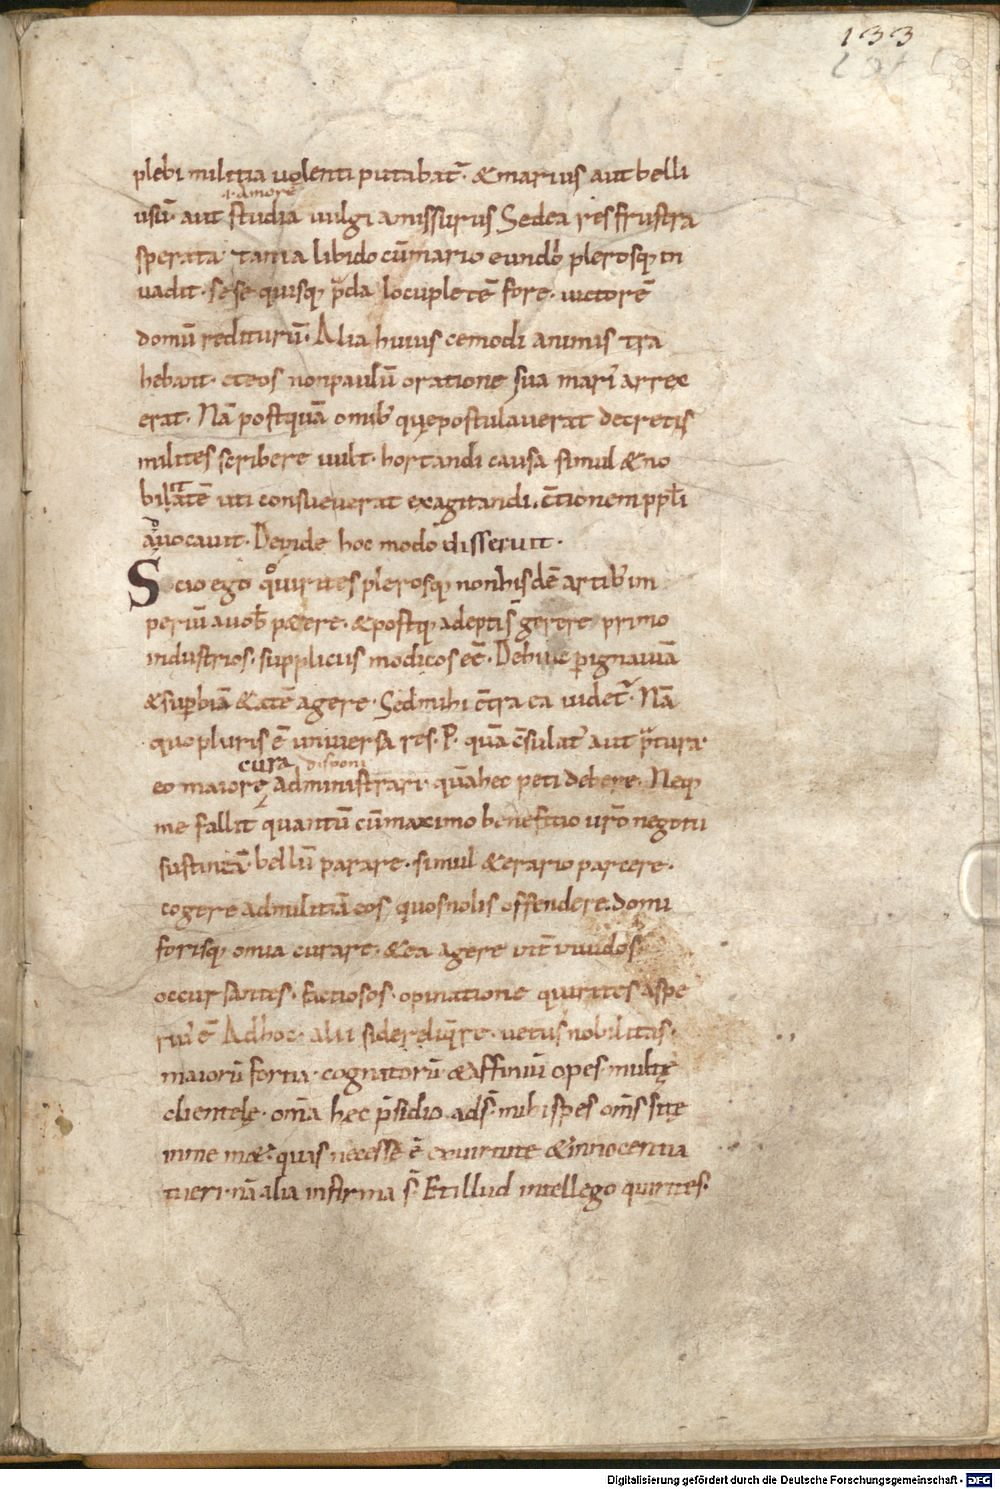 133
plebi militia uolenti putabat̅. & marius aut belli
.i. amore
usu̅. aut studia uulgi amissurus Sed ea res frustra
sperata. tanta libido cu̅ mario eundi plerosq; in
uadit. sese quisq; p̅da locuplete̅ fore. uictore̅
domu̅ redituru̅. Alia huius cemodi animis tra
hebant. et eos non paulu̅ oratione sua mari arrex
erat. Na̅ postqua̅ omib; quę postulauerat decretis
milites scribere uult. hortandi causa simul & no
bilitate̅ uti consueuerat exagitandi. c̅tionem pp̅li
aduocauit. Deinde hoc modo disseruit.
Scio ego quirites plerosq; non hisde̅ artib; im
periu̅ a uob̅ petere. & postq; adepti s̅ gerere primo
industrios. supplicus modicos e̅e̅. Dehinc p ignauia̅
& sup̅bia̅ &ate̅ agere. Sed mihi c̅tra ea uidet̅. Na̅
quo pluris e̅ uniuersa res. P. qua̅ c̅sulat' aut p̅tura.
cura disponi
eo maiore administrari. qua̅ hec peti debere. Neq;
me fallit quantu̅ cu̅ maximo benefitio uro̅ negotii
sustinea̅. bellu̅ parare. simul & erario parcere.
cogere ad militia̅ eos quos nolis offendere. domi
forisq; omia curare. & ea agere int̅ inuidos
occursantes. factiosos. opinatione quirites aspe
rius e̅ Ad hoc. alii si delinq̅re. uetus nobilitas.
maioru̅ fortia. cognatoru̅ & affiniu̅ opes. multę
clientelę. om̅a hec p̅sidio ads̅. mihi spes om̅s sitę
in me met. quas necesse e̅ ex uirtute & innocentia
tueri. na̅ alia infirma s̅. Et illud intellego quirites.
Digitalisierung gefördert durch die Deutsche Forschungsgemeinschaft - DFG